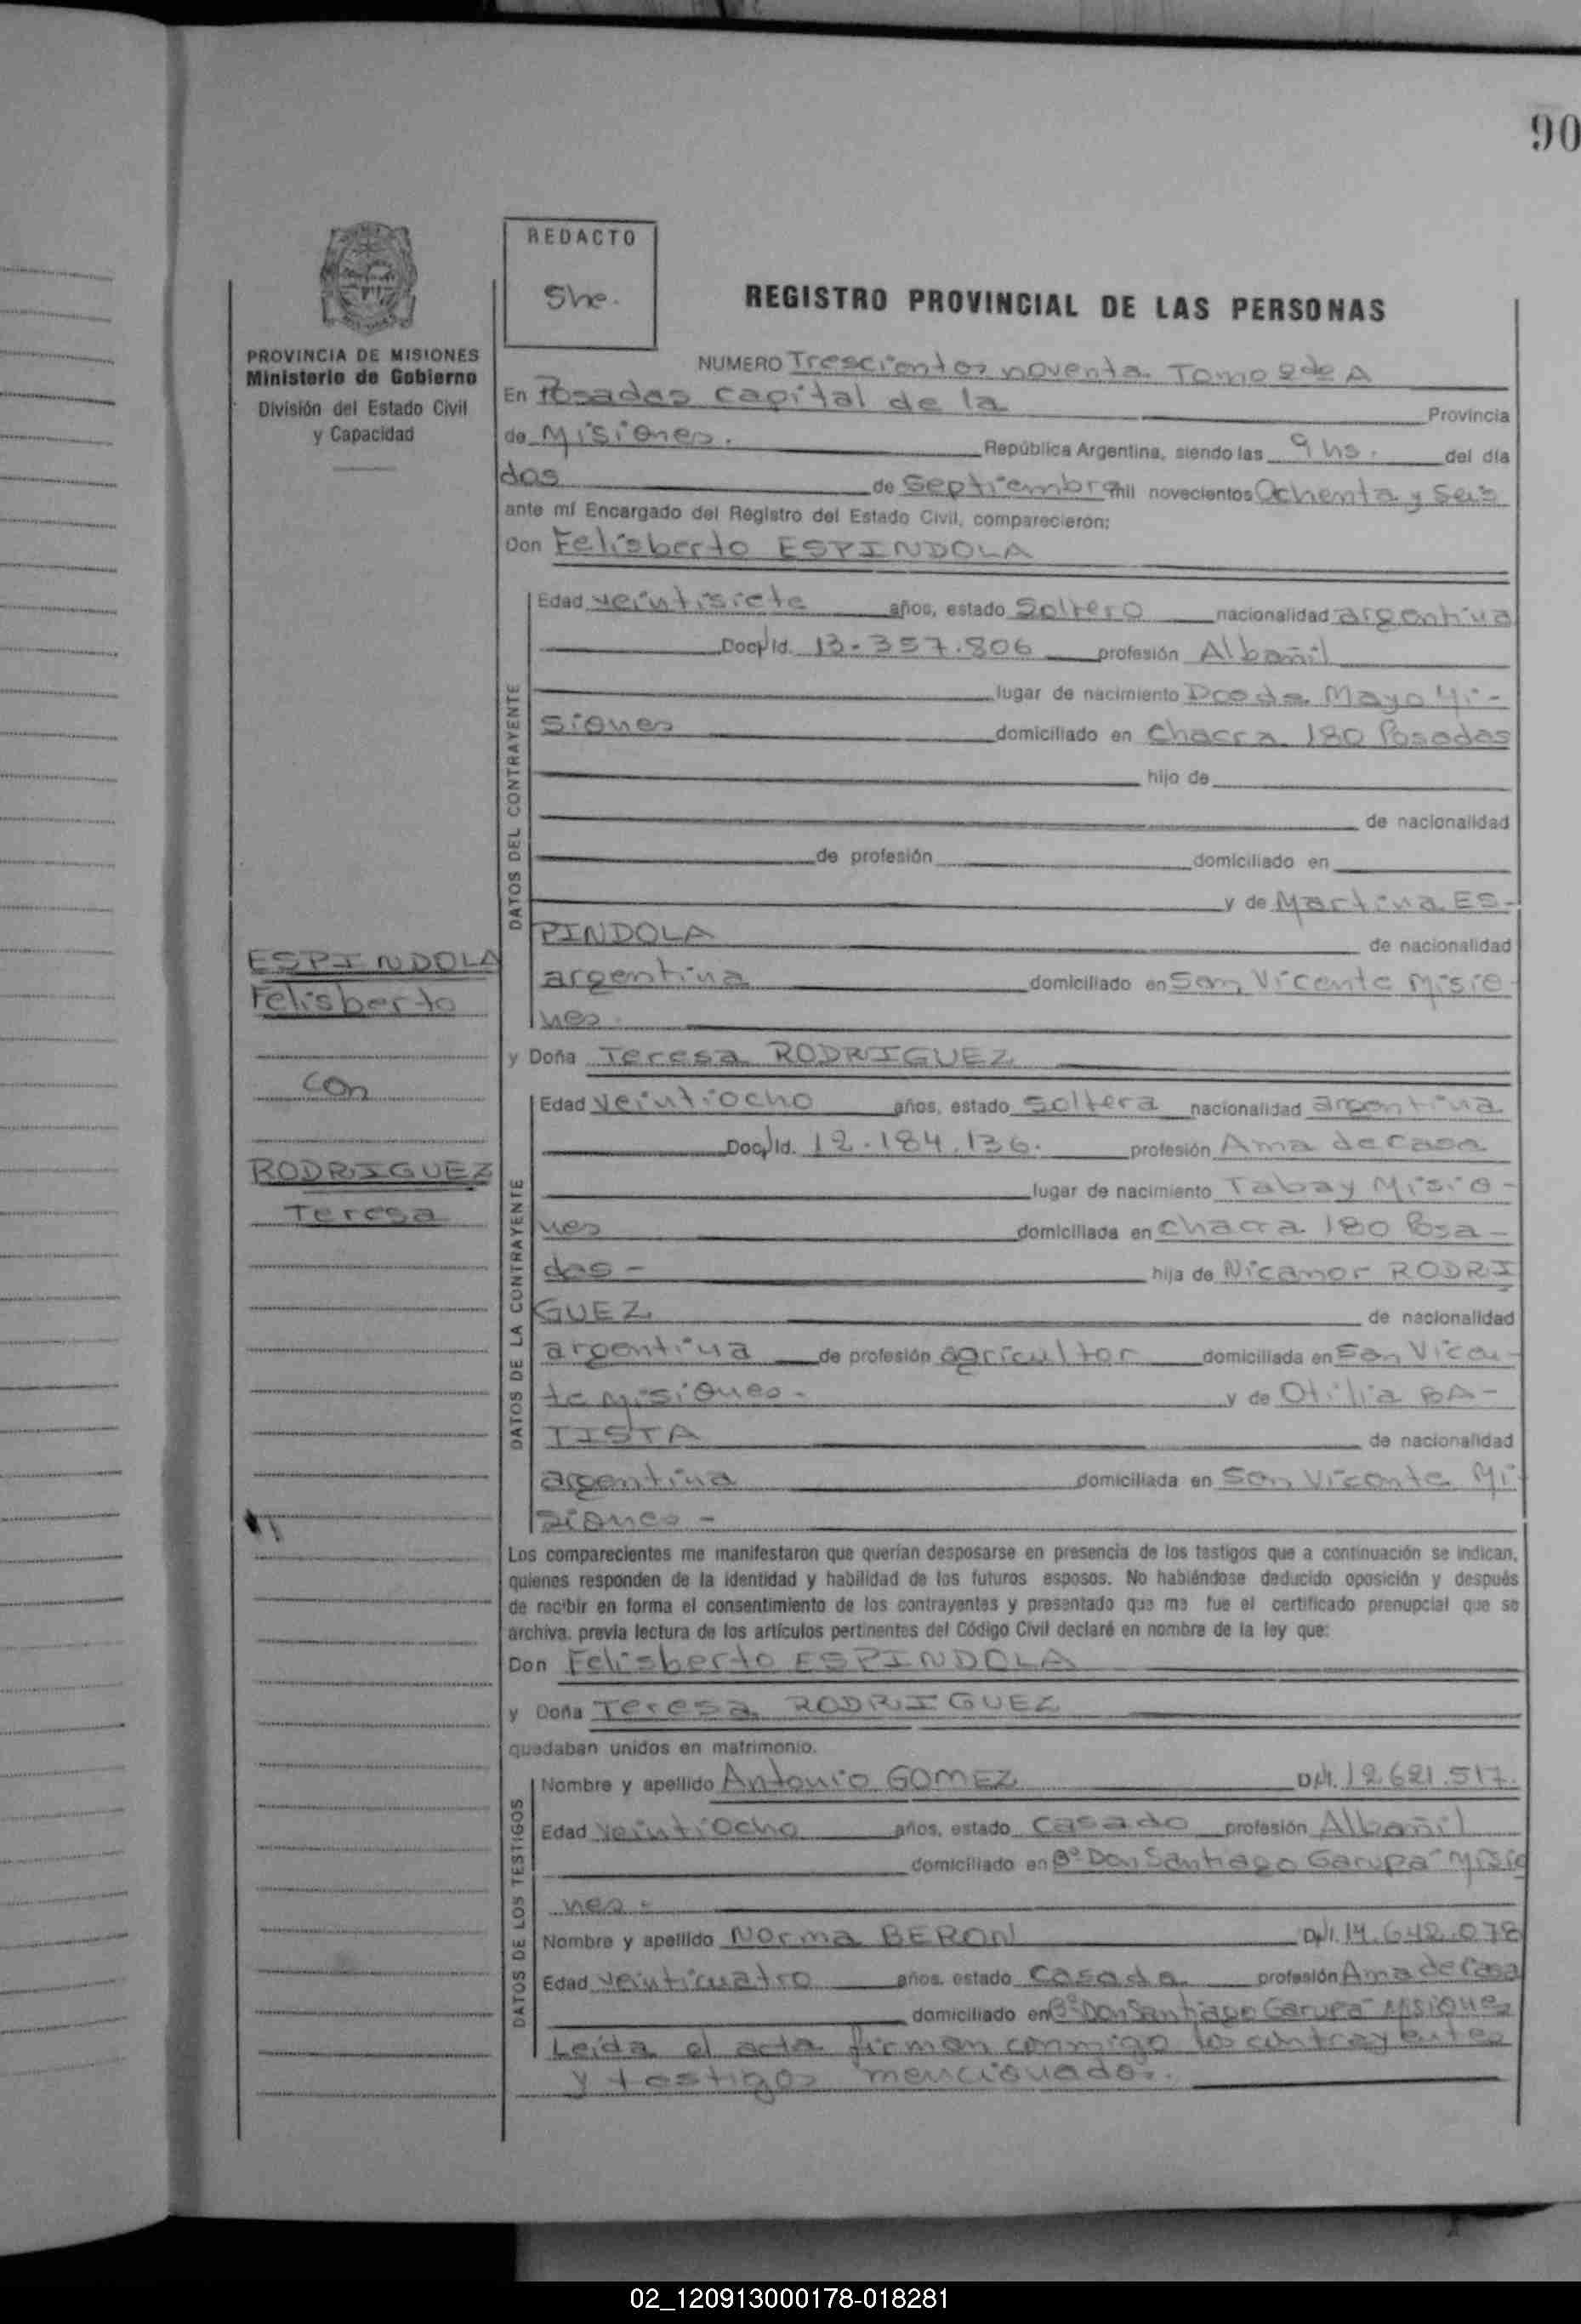 90
REDACTO
She.
REGISTRO PROVINCIAL DE LAS PERSONAS
PROVINCIA DE MISIONES
Ministerio de Gobierno
División del Estado Civil
y Capacidad
NUMERO Trescientos noventa Tomo 2do A
En Posadas capital de la Provincia
de Misiones. República Argentina, siendo las 9 hs. del día
dos de Septiembre mil novecientos Ochenta y Seis
ante mí Encargado del Registro del Estado Civil, comparecieron:
Don Felisberto ESPINDOLA
DATOS DEL CONTRAYENTE
Edad veintisiete años, estado Soltero nacionalidad argentina
Doc/Id. 13.357.806 profesión Albañil
lugar de nacimiento Dos de Mayo Mi-
siones domiciliado en Chacra 180 Posadas
hijo de
de nacionalidad
de profesión domiciliado en
y de Martina ES-
PINDOLA de nacionalidad
argentina domiciliado en San Vicente Misio-
nes.
ESPINDOLA
Felisberto
con
RODRIGUEZ
Teresa
y Doña Teresa RODRIGUEZ
DATOS DE LA CONTRAYENTE
Edad veintiocho años, estado Soltera nacionalidad argentina
Doc/Id. 12.184.136. profesión Ama de casa
lugar de nacimiento Tabay Misio-
nes domiciliada en Chacra 180 Posa-
das- hija de Nicanor RODRI
GUEZ de nacionalidad
argentina de profesión agricultor domiciliada en San Vicen-
te Misiones. y de Otilia BA-
TISTA de nacionalidad
argentina domiciliada en San Vicente Mi-
siones-
Los comparecientes me manifestaron que querían desposarse en presencia de los testigos que a continuación se indican,
quienes responden de la identidad y habilidad de los futuros esposos. No habiéndose deducido oposición y después
de recibir en forma el consentimiento de los contrayentes y presentado que me fue el certificado prenupcial que se
archiva. previa lectura de los artículos pertinentes del Código Civil declaré en nombre de la ley que:
Don Felisberto ESPINDOLA
y Doña Teresa RODRIGUEZ
quedaban unidos en matrimonio.
DATOS DE LOS TESTIGOS
Nombre y apellido Antonio GOMEZ DNI. 12.621.517.
Edad veintiocho años, estado Casado profesión Albañil
domiciliado en Bº Don Santiago Garupa-Misio
nes.
Nombre y apellido Norma BERON DNI. 14.642.078
Edad veinticuatro años, estado Casada profesión Ama de Casa
domiciliado en Bº Don Santiago Garupa-Misiones
Leída el acta firman conmigo los contrayentes
y testigos mencionados.
02_120913000178-018281